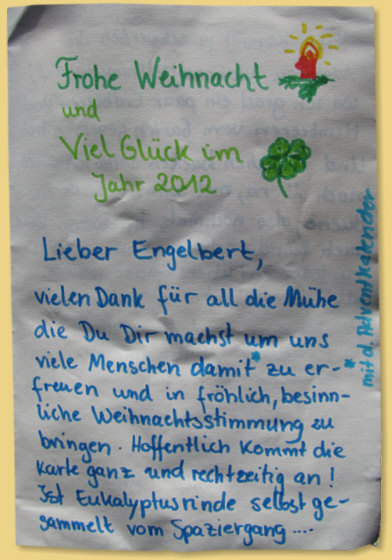 Frohe Weihnacht
und
Viel Glück im
Jahr 2012
Lieber Engelbert,
vielen Dank für all die Mühe
die Du Dir machst um uns
viele Menschen damit* zu er-
freuen und in fröhlich, besinn-
liche Weihnachtsstimmung zu
bringen. Hoffentlich kommt die
Karte ganz und rechtzeitig an!
Ist Eukalyptusrinde selbst ge-
sammelt vom Spaziergang ....
* mit d. Adventkalender